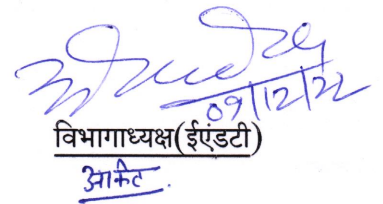 09/12/22
विभागाध्यक्ष(ईएंडटी)
आर्केट.